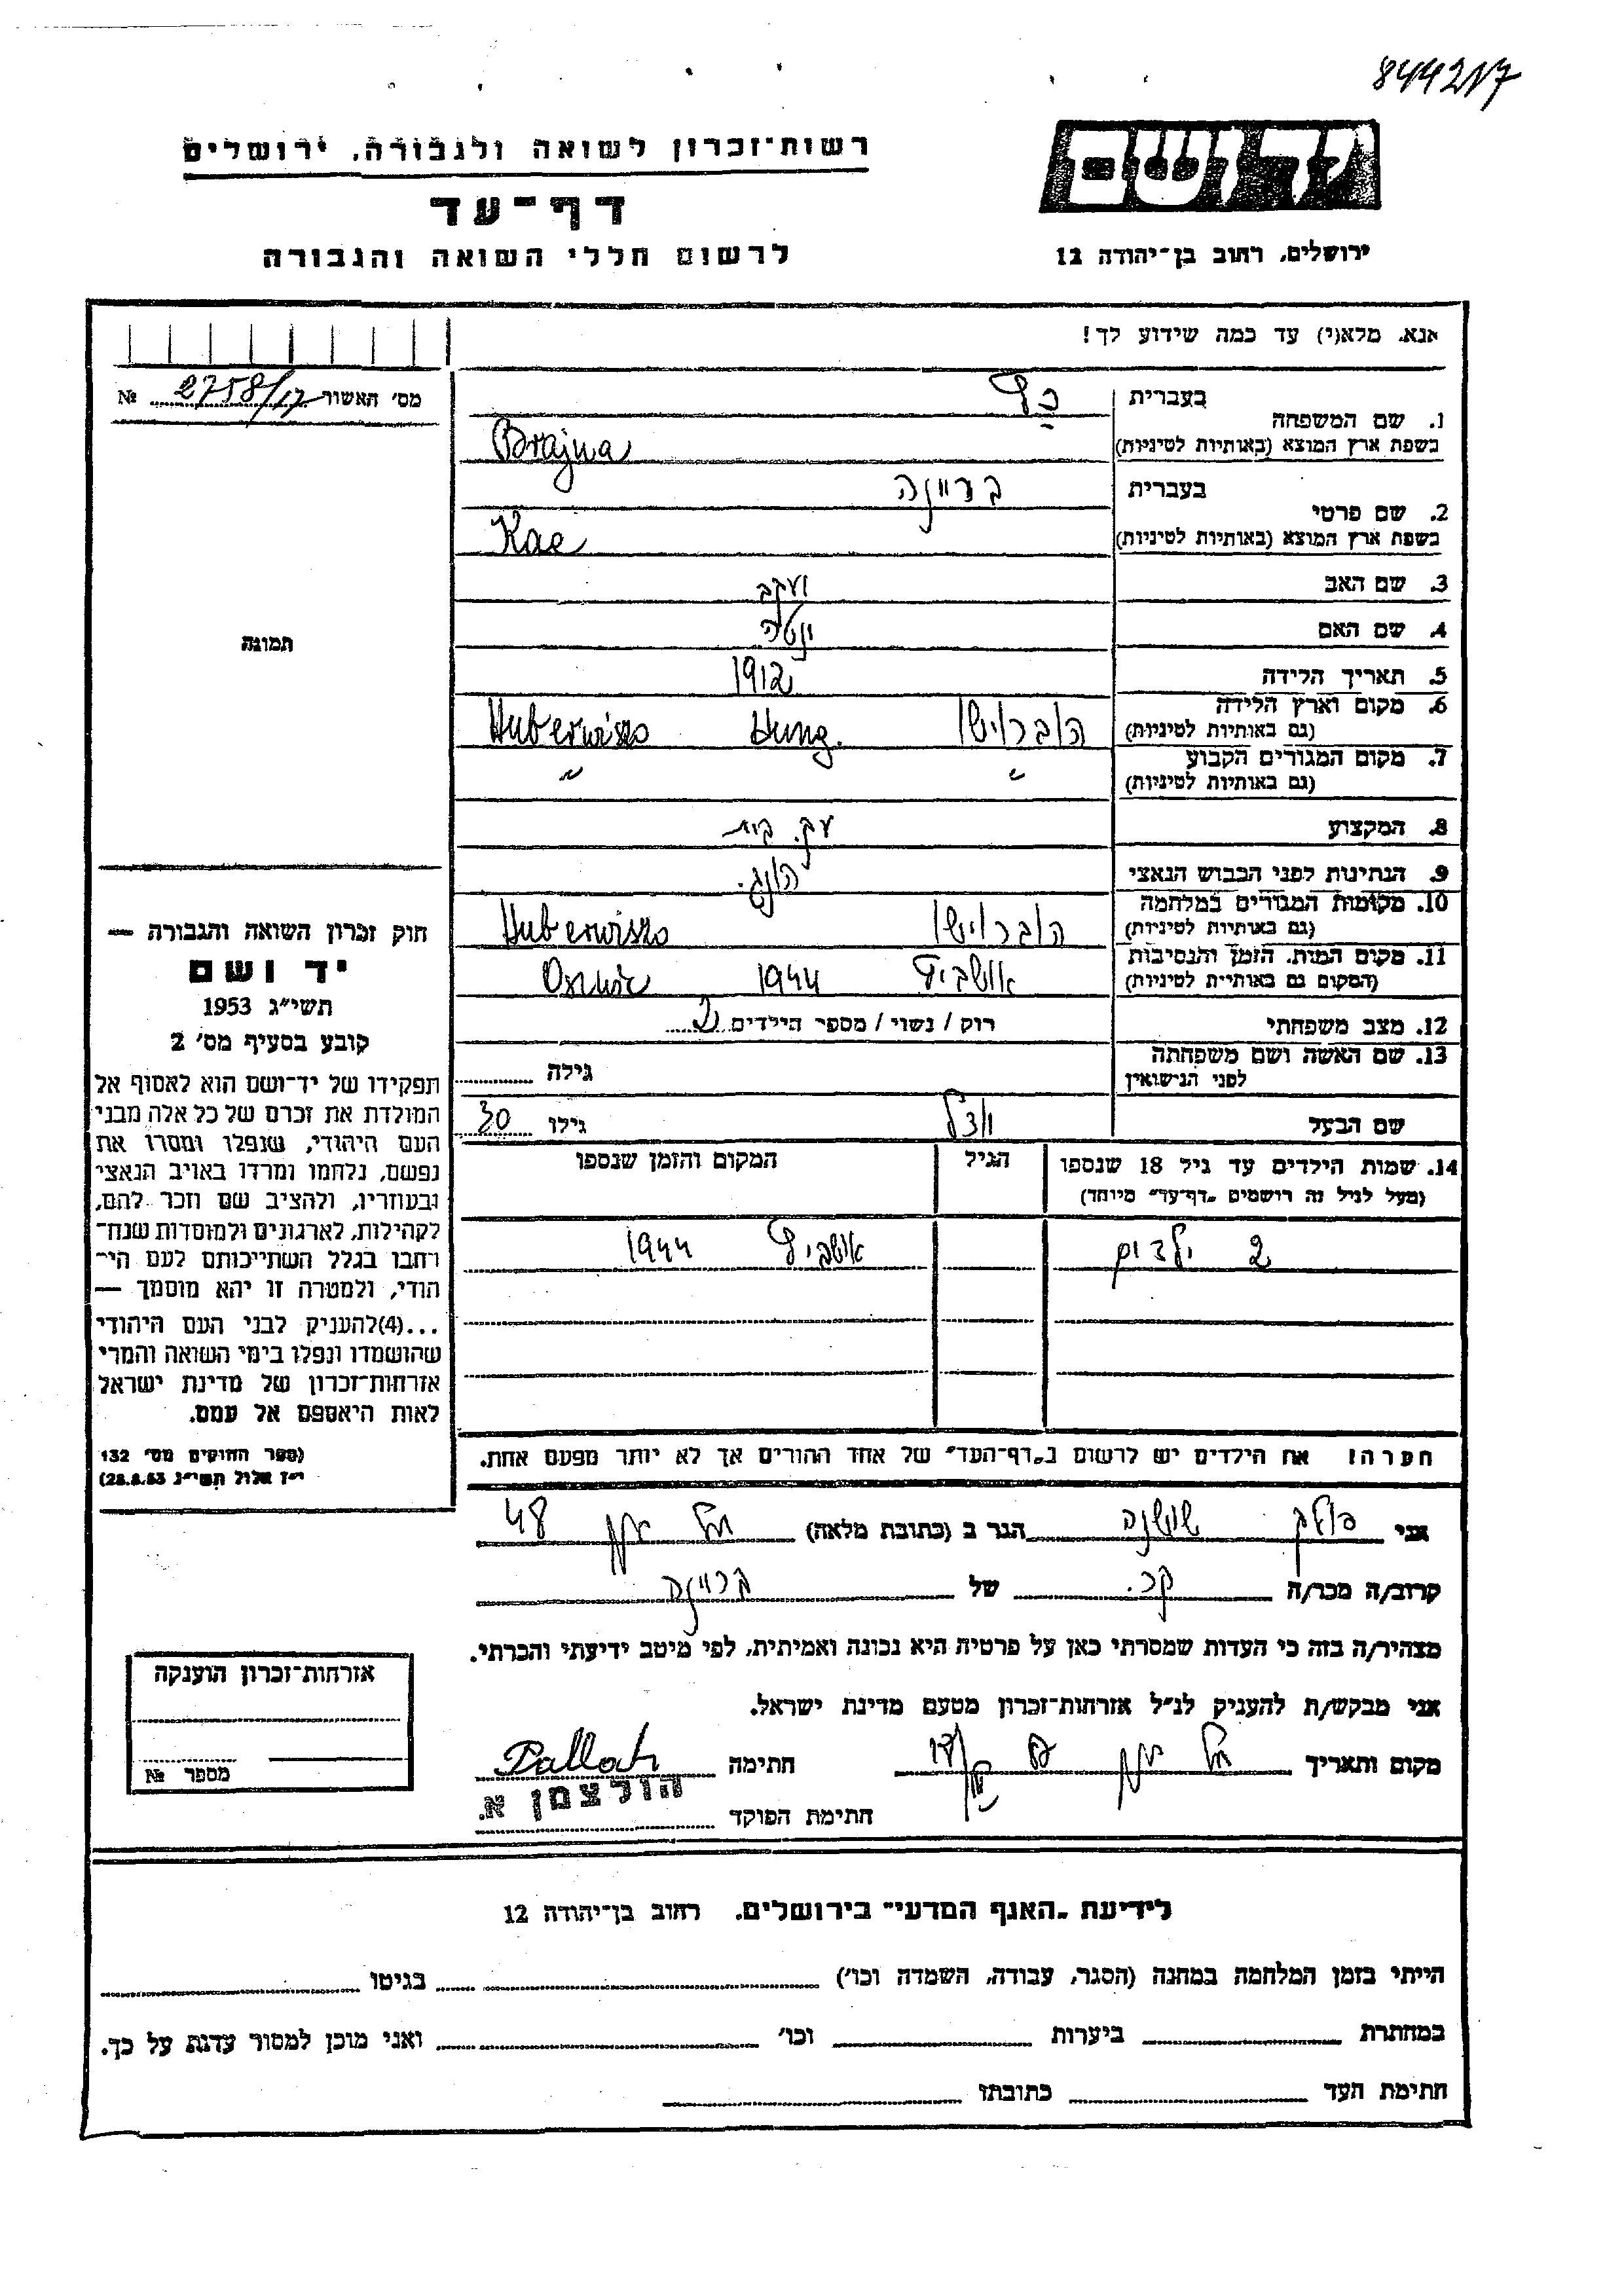 844217
רשות-זכרון לשואה ולגבורה, ירושלים
יד ושם
דף-עד
לרשום חללי השואה והגבורה
ירושלים, רחוב בן-יהודה 12
אנא, מלא(י) עד כמה שידוע לך!
מס' האשור 2758/17 №
1. שם המשפחה
בעברית כץ
בשפת ארץ המוצא (באותיות לטיניות) Brajna
2. שם פרטי
בעברית בריינה
בשפת ארץ המוצא (באותיות לטיניות) Kac
3. שם האב יעקב
4. שם האם יוטה
5. תאריך הלידה 1912
6. מקום וארץ הלידה
(גם באותיות לטיניות) הוברוישו Hung. Huberwiszo
7. מקום המגורים הקבוע
(גם באותיות לטיניות) " "
8. המקצוע עק. בית
9. הנתינות לפני הכבוש הנאצי הונג.
10. מקומות המגורים במלחמה
(גם באותיות לטיניות) הוברוישו Huberwiszo
11. מקום המות, הזמן והנסיבות
(המקום גם באותיות לטיניות) אושביץ 1944
12. מצב משפחתי רוק / נשוי / מספר הילדים 2
13. שם האשה ושם משפחתה
לפני הנישואין גילה
שם הבעל גילו 30
14. שמות הילדים עד גיל 18 שנספו
(מעל לגיל זה רושמים "דף-עד" מיוחד)
הגיל
המקום והזמן שנספו
2 ילדים אושביץ 1944
תמונה
חוק זכרון השואה והגבורה —
יד ושם
תשי"ג 1953
קובע בסעיף מס' 2
תפקידו של יד-ושם הוא לאסוף אל
המולדת את זכרם של כל אלה מבני
העם היהודי, שנפלו ומסרו את
נפשם, נלחמו ומרדו באויב הנאצי
ובעוזריו, ולהציב שם וזכר להם,
לקהילות, לארגונים ולמוסדות שנח-
רחבו בגלל השתייכותם לעם הי-
הודי, ולמטרה זו יהא מוסמך —
...(4)להעניק לבני העם היהודי
שהושמדו ונפלו בימי השואה והמרי
אזרחות-זכרון של מדינת ישראל
לאות היאספם אל עמם.
(ספר החוקים מס' 132
י"ז אלול תשי"ג 28.8.53)
הערה! את הילדים יש לרשום ב"דף-העד" של אחד ההורים אך לא יותר מפעם אחת.
אני פולק שושנה הגר ב (כתובת מלאה) 48
קרוב/ה מכר/ה קר. של בריינה
מצהיר/ה בזה כי העדות שמסרתי כאן על פרטיה היא נכונה ואמיתית, לפי מיטב ידיעתי והכרתי.
אני מבקש/ת להעניק לנ"ל אזרחות-זכרון מטעם מדינת ישראל.
מקום ותאריך חתימה Pollak
חתימת הפוקד הולצמן א.
אזרחות-זכרון הוענקה
מספר №
לידיעת "האגף המדעי" בירושלים, רחוב בן-יהודה 12
הייתי בזמן המלחמה במחנה (הסגר, עבודה, השמדה וכו') בגיטו
במחתרת ביערות וכו' ואני מוכן למסור עדות על כך.
חתימת העד כתובתו